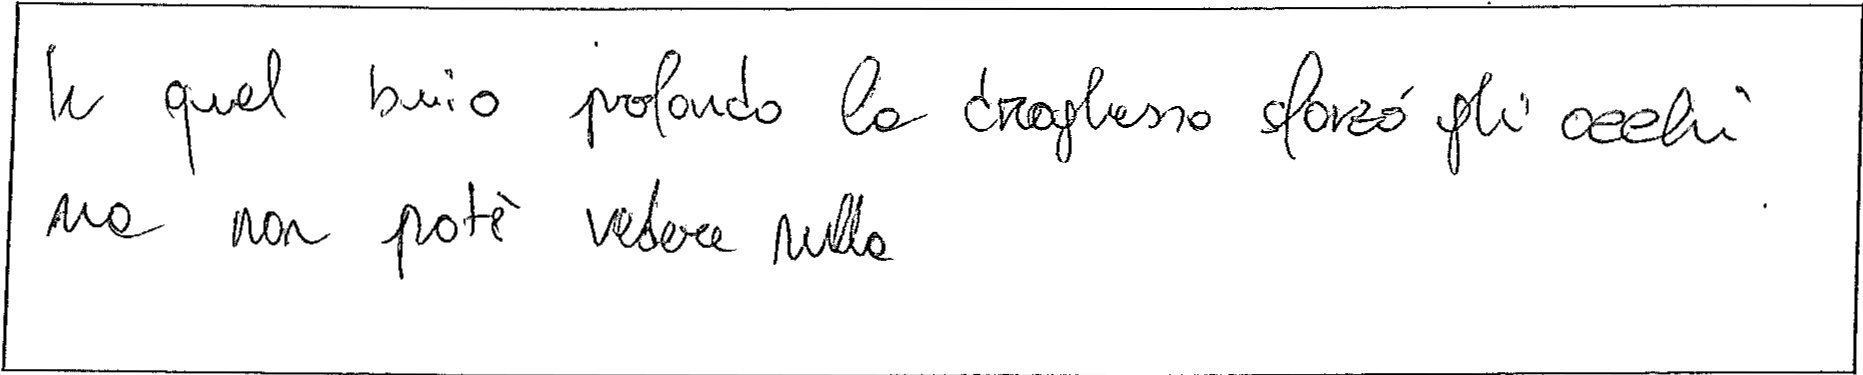 In quel buio profondo la draghessa sforzó gli occhi
ma non potè vedere nulla